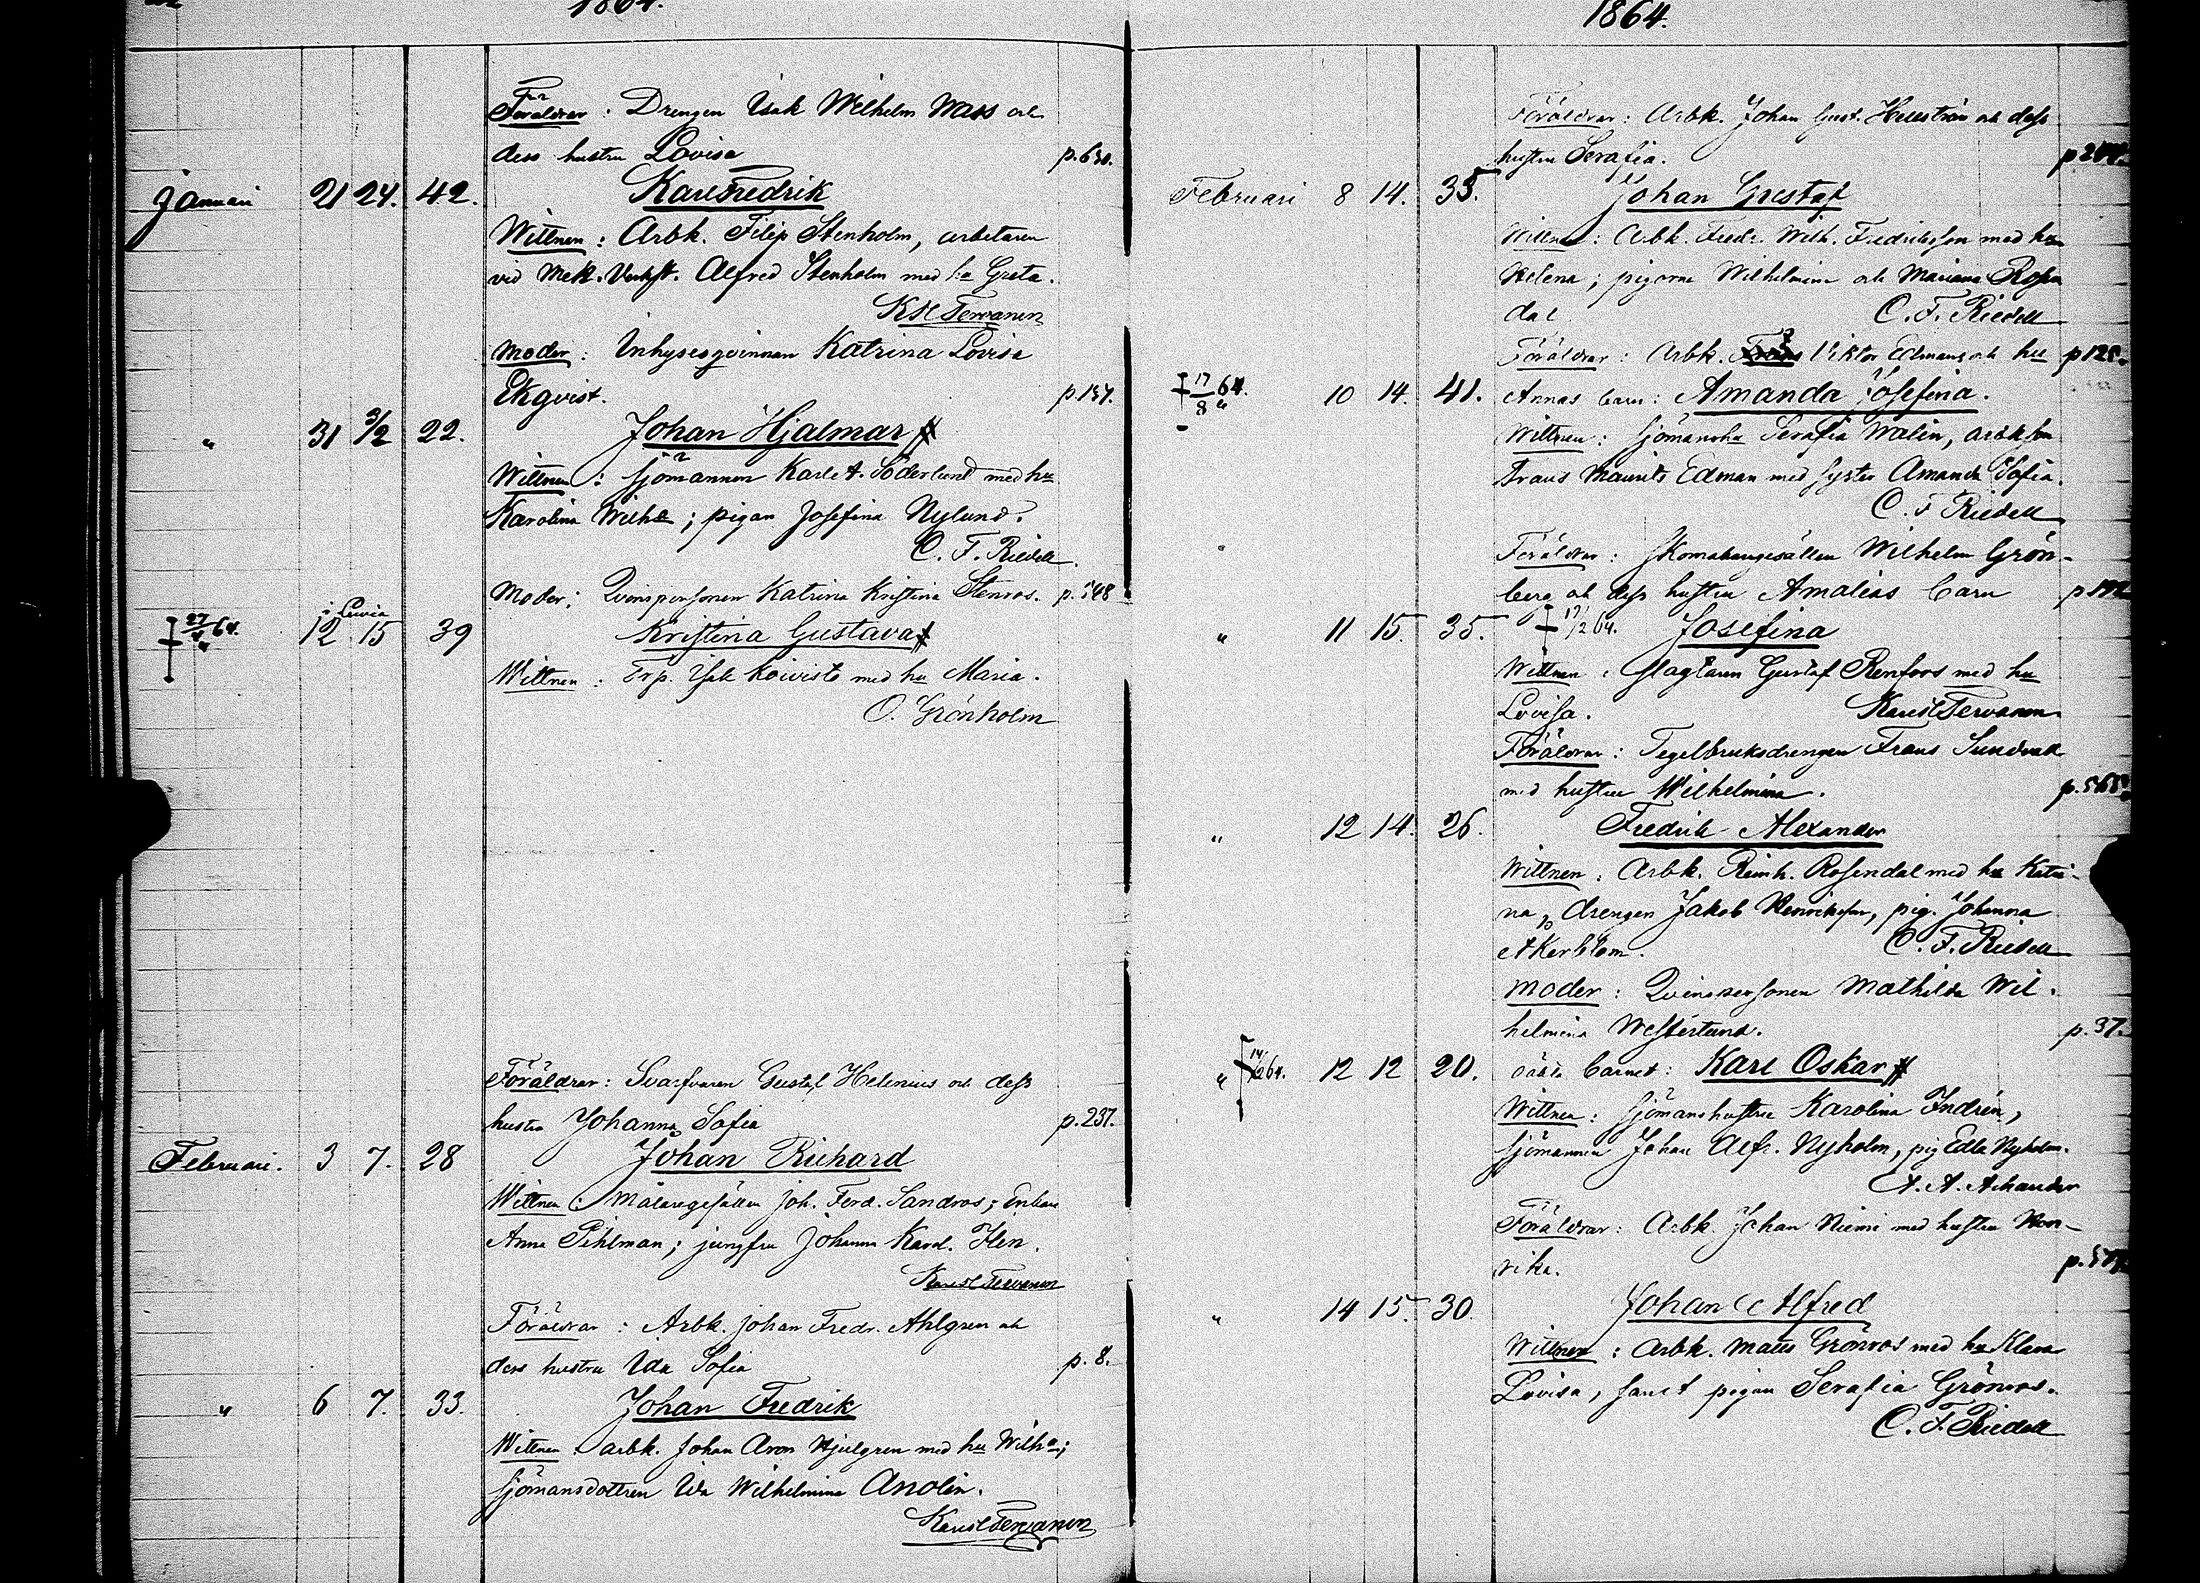 1864.
Föräldrar: Drengen Isak Wilhelm Wass och
dess hustru Lovisa p. 630.
Januari 21 24. 42. Karl Fredrik
Wittnen: Arbk. Filip Stenholm, arbetaren
vid Mek. Verkst. Alfred Stenholm med hu Greta.
K H Tervanen
Moder: Inhysesqvinnan Katrina Lovisa
Ekqvist. p. 137.
" 31 3/2 22. Johan Hjalmar #
Wittnen: Sjömannen Karl A. Söderlund med hu
Karolina Wilha; pigan Josefina Nylund.
C. F. Riedell.
Moder: Qvinspersonen Katrina Kristina Stenros. p. 548
i Luvia
† 27/4 64. 12 15 39 Kristina Gustava #
Wittnen: Trp. Isak Koivisto med hu Maria.
O. Grönholm
Föräldrar: Svarfvaren Gustaf Helenius och dess
hustru Johanna Sofia p. 237.
Februari. 3 7. 28 Johan Richard
Wittnen: Målaregesällen Joh. Ferd. Sandros; Enkan
Anna Pihlman; jungfru Johanna Karol. Flen.
Karl H Tervanen
Föräldrar: Arbk. Johan Fredr. Ahlgren och
dess hustru Ida Sofia p. 8.
" 6 7. 33. Johan Fredrik
Wittnen: arbk. Johan Aron Hjulgren med hu Wilha;
Sjömansdottren Ida Wilhelmina Anolin.
Karl H Tervanen
1864.
Föräldrar: Arbk. Johan Gust. Hellström och dess
hustru Serafia.
Februari 8 14. 35. Johan Gustaf
Wittnen: Arbk. Fredr. Wilh. Fredriksson med hu
Helena; pigorna Wilhelmina och Mariana Rosen
dal C. F. Riedell
Föräldrar: Arbk. Frans Viktor Edman och hu p. 125.
† 17/8 64. 10 14. 41. Annas barn: Amanda Josefina.
Wittnen: Sjömanshu Serafia Walin, arbk son
Frans Maurits Edman med syster Amanda Sofia.
C. F. Riedell
Föräldrar: Skomakaregesällen Wilhelm Grön-
berg och dess hustru Amalias barn
" 11 15. 35. † 17/2 64. Josefina
Wittnen: Slagtaren Gustaf Renfors med hu
Lovisa. Karl H Tervanen
Föräldrar: Tegelbruksdrengen Frans Sundvall
med hustru Wilhelmina. p. 565.
" 12 14. 26. Fredrik Alexander
Wittnen: Arbk. Reinh. Rosendal med hu Katri-
na, drengen Jakob Henriksson, pig. Johanna
Åkerblom. C. F. Riedell
Moder: Qvinspersonen Mathilda Wil-
helmina Westerlund. p. 37.
" † 64. 12 12 20. oäkta barnet: Karl Oskar #
Wittnen: Sjömanshustru Karolina Indrén,
Sjömannen Johan Alfr. Nyholm, pig Edla Nyholm.
Föräldrar: Arbk. Johan Niemi med hustru Hen-
rika.
" 14 15. 30. Johan Alfred
Wittnen: Arbk. Matts Grönros med hu Klara
Lovisa, samt pigan Serafia Grönros.
C. F. Riedell